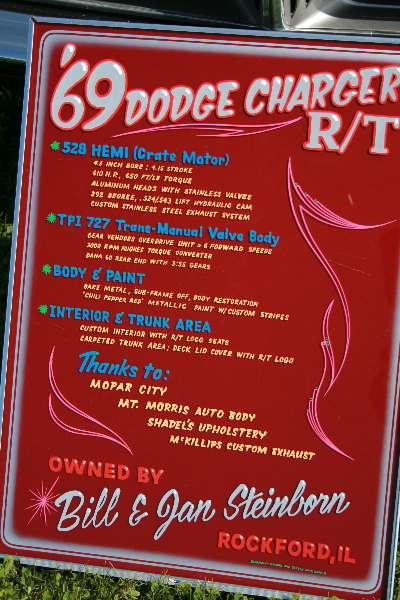 '69 DODGE CHARGER
R/T
528 HEMI (Crate Motor)
4.5 INCH BORE; 4.15 STROKE
610 H.P., 650 FT/LB TORQUE
ALUMINUM HEADS WITH STAINLESS VALVES
292 DEGREE, .524/.543 LIFT HYDRAULIC CAM
CUSTOM STAINLESS STEEL EXHAUST SYSTEM
TPI 727 Trans-Manual Valve Body
GEAR VENDORS OVERDRIVE UNIT = 6 FORWARD SPEEDS
3000 RPM HUGHES TORQUE CONVERTER
DANA 60 REAR END WITH 3:55 GEARS
BODY & PAINT
BARE METAL, SUB-FRAME OFF, BODY RESTORATION
'CHILI PEPPER RED' METALLIC PAINT W/CUSTOM STRIPES
INTERIOR & TRUNK AREA
CUSTOM INTERIOR WITH R/T LOGO SEATS
CARPETED TRUNK AREA; DECK LID COVER WITH R/T LOGO
Thanks to:
MOPAR CITY
MT. MORRIS AUTO BODY
SHADEL'S UPHOLSTERY
McKILLIPS CUSTOM EXHAUST
OWNED BY
Bill & Jan Steinborn
ROCKFORD, IL